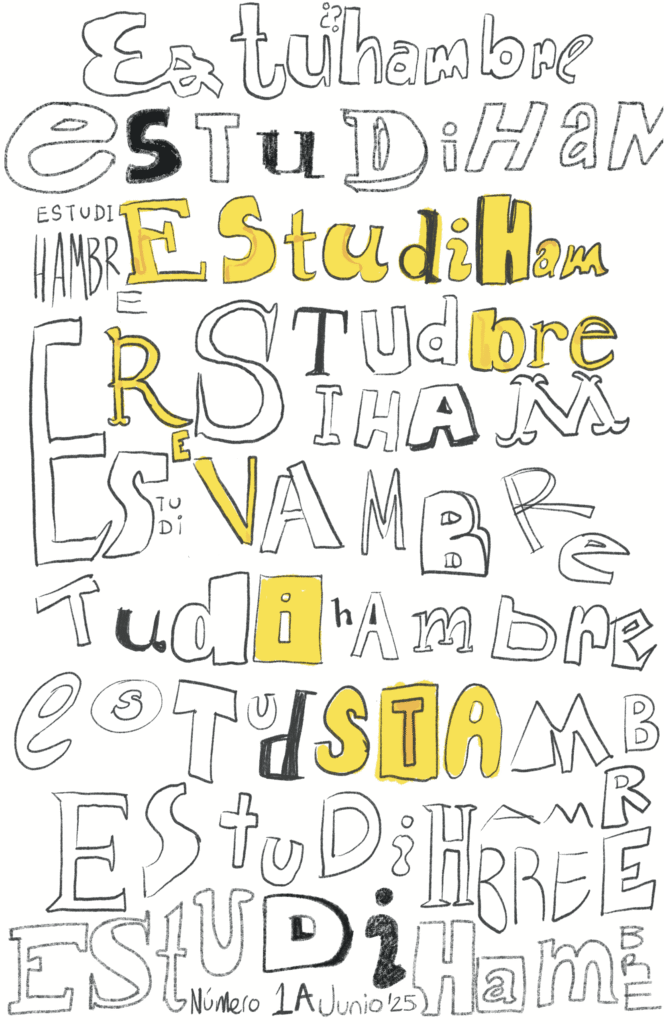 Es tu ¿? hambre
eSTuDiHaM
ESTUDI
HAMBR
E
EStudiHam
ERSTUdbre
IHAM
E
ES TU DI VAMBRe
TudihAmbre
esTudSTAMB
RE
EStuDiHAM
BRE
EStUDiHam
BRE
Número 1A Junio '25